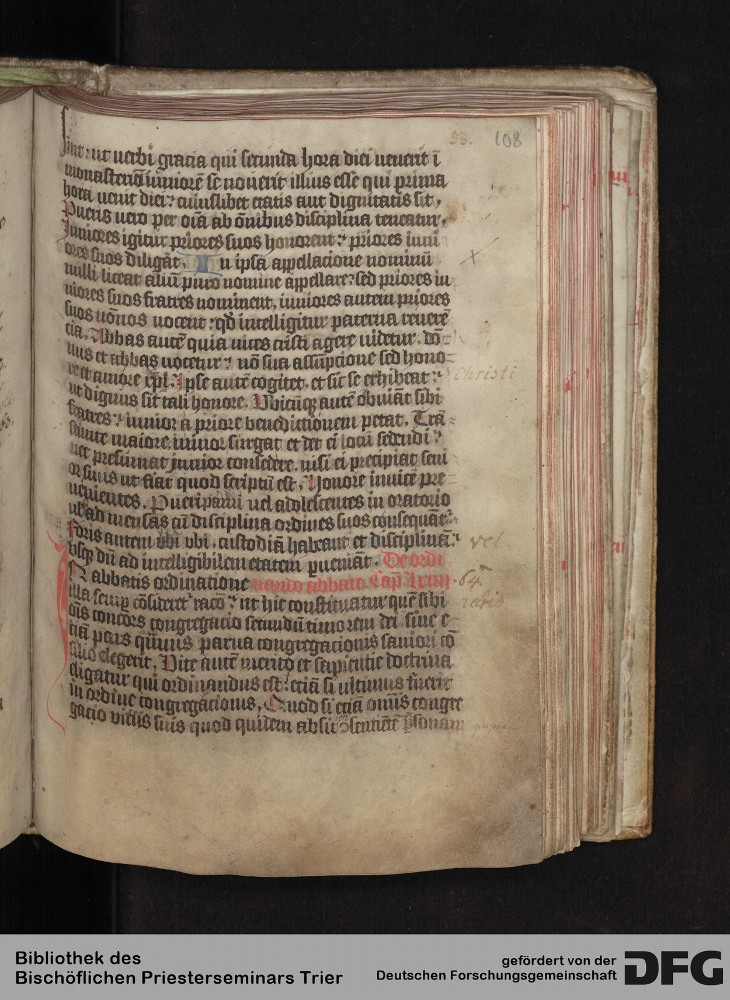 53. 108
sint · ut uerbi gracia qui secunda hora diei uenerit ī
monasteriū iuniorē se nouerit illius esse qui prima
hora uenit diei · cuiuslibet etatis aut dignitatis sit .
Pueris uero per oīa ab ōnibus disciplina teneatur .
Iuniores igitur priores suos honorent · priores iuni
ores suos diligāt . In ipsa appellacione nominū
nulli liceat aliū puro nomine appellare · sed priores iu
niores suos fratres nominent . iuniores autem priores
suos nōnos uocent · qd̄ intelligitur paterna reuerē
cia . Abbas autē quia uices cristi agere uidetur . dō-
nus et abbas uocetur · nō sua assūpcione sed hono-
re et amore xp̄i . Ipse autē cogitet . et sic se exhibeat ·
Christi
ut dignus sit tali honore . Vbicūq; autē obuiāt sibi
fratres · iunior a priore benedictionem petat . Trā-
seunte maiore minor surgat et det ei locū sedendi ·
nec presumat junior consedere . nisi ei precipiat seni
or suus ut fiat quod scriptū est . Honore inuicē pre-
uenientes . Pueri parui uel adolescentes in oratorio
uel ad mensas cū disciplina ordines suos consequāt̄
Foris autem ubi vbi . custodiā habeant et disciplinā ·
vel
vsq; dū ad intelligibilem etatem pueniāt . De ordi
In abbatis ordinacione nando abbate Cap̄ lxiiij .
64.
illa semp cōsideret̄ racō · ut hic constituatur quē sibi
ratio
oīs concors congregacio secundū timorem dei . siue e-
tiā pars quīuis parua congregacionis saniori cō
silio elegerit . Vite autē merito et sapientie doctrina
eligatur qui ordinandus est · etiā si ultimus fuerit
in ordine congregacionis . Quod si etiā omīs congre
gacio vitiis suis quod quidem absit ꝯsentiētē ꝑsonam
Bibliothek des
Bischöflichen Priesterseminars Trier
gefördert von der
Deutschen Forschungsgemeinschaft
DFG